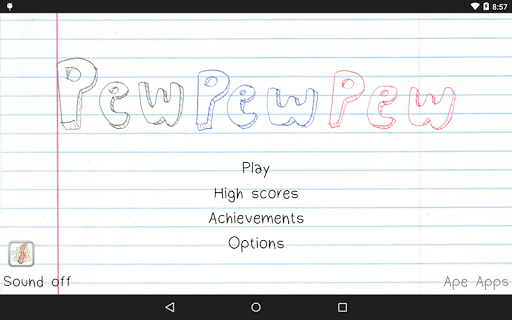 8:57
Pew Pew Pew
Play
High scores
Achievements
Options
Sound off
Ape Apps